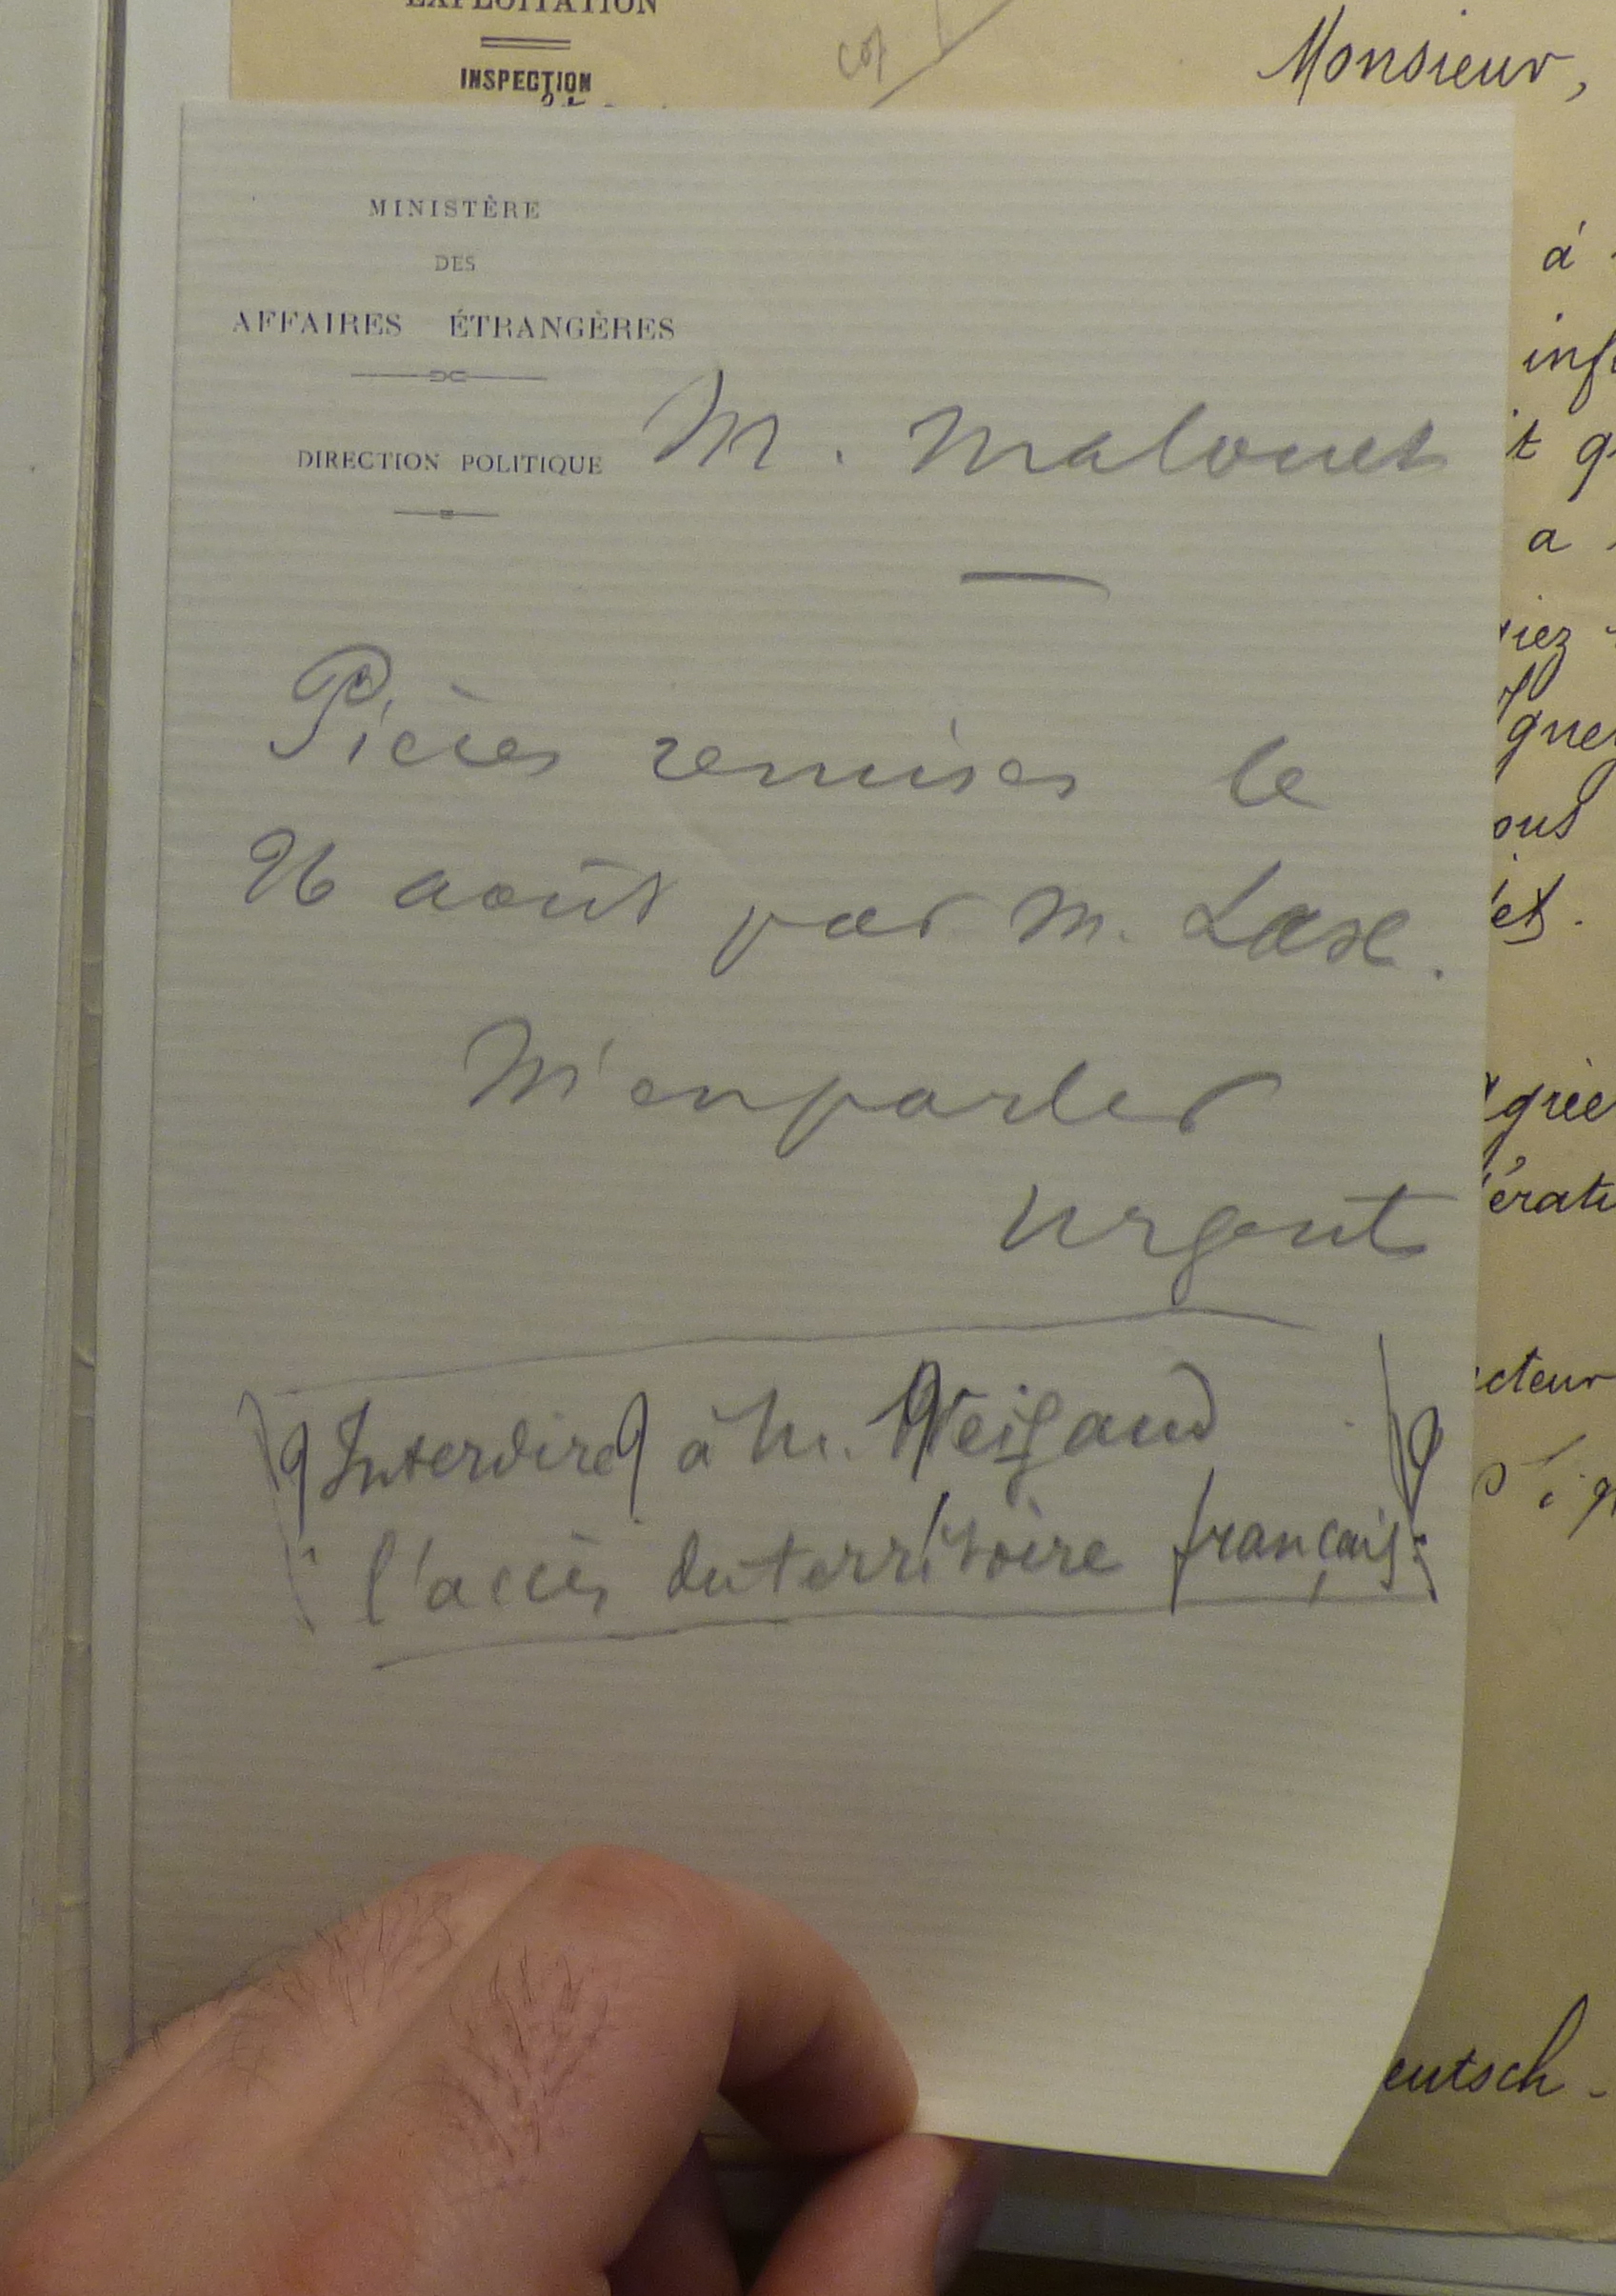 EXPLOITATION
INSPECTION
Monsieur,
MINISTÈRE
DES
AFFAIRES ÉTRANGÈRES
DIRECTION POLITIQUE
M. Malouet
Pièces remises le
26 août par M. Lax.
M'en parler
urgent
Interdire à M. Weigand
l'accès du territoire français
à
a
ous
cteur
eutsch